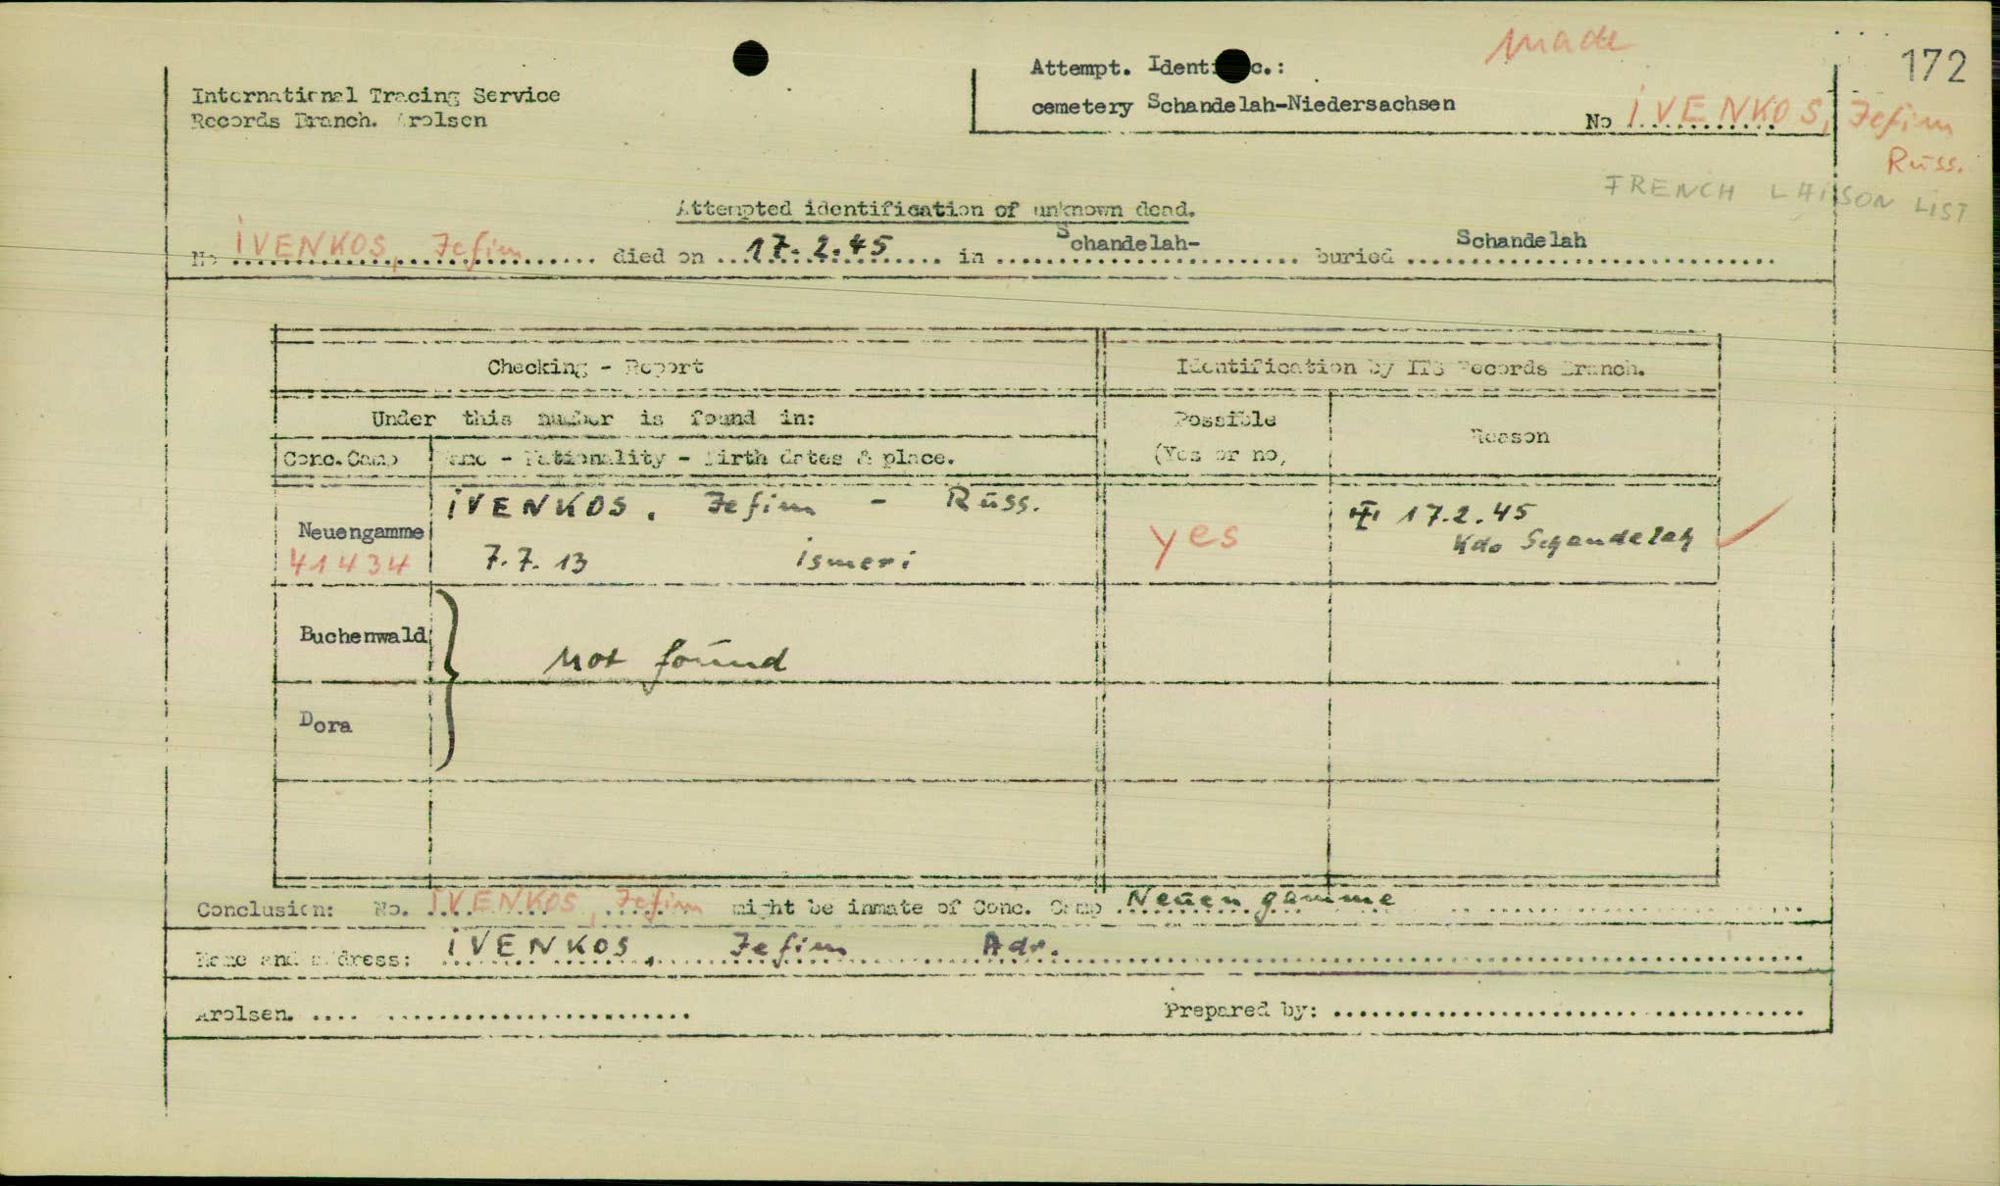 made
172
International Tracing Service
Records Branch. Arolsen
Attempt. Identific.:
cemetery Schandelah-Niedersachsen
No IVENKOS, Jefim
Russ.
FRENCH LIAISON LIST
Attempted identification of unknown dead.
No IVENKOS, Jefim died on 17.2.45 in Schandelah- buried Schandelah
Checking - Report
Identification by ITS Records Branch.
Under this number is found in:
Possible
(Yes or no)
Reason
Conc.Camp
Name - Nationality - Birth dates & place.
Neuengamme
41434
IVENKOS, Jefim - Russ.
7.7.13 Ismeri
yes
17.2.45
Kdo Schandelah
Buchenwald
Not found
Dora
Conclusion: No. IVENKOS, Jefim might be inmate of Conc. Camp Neuengamme
Name and address: IVENKOS, Jefim Adr.
Arolsen.
Prepared by: